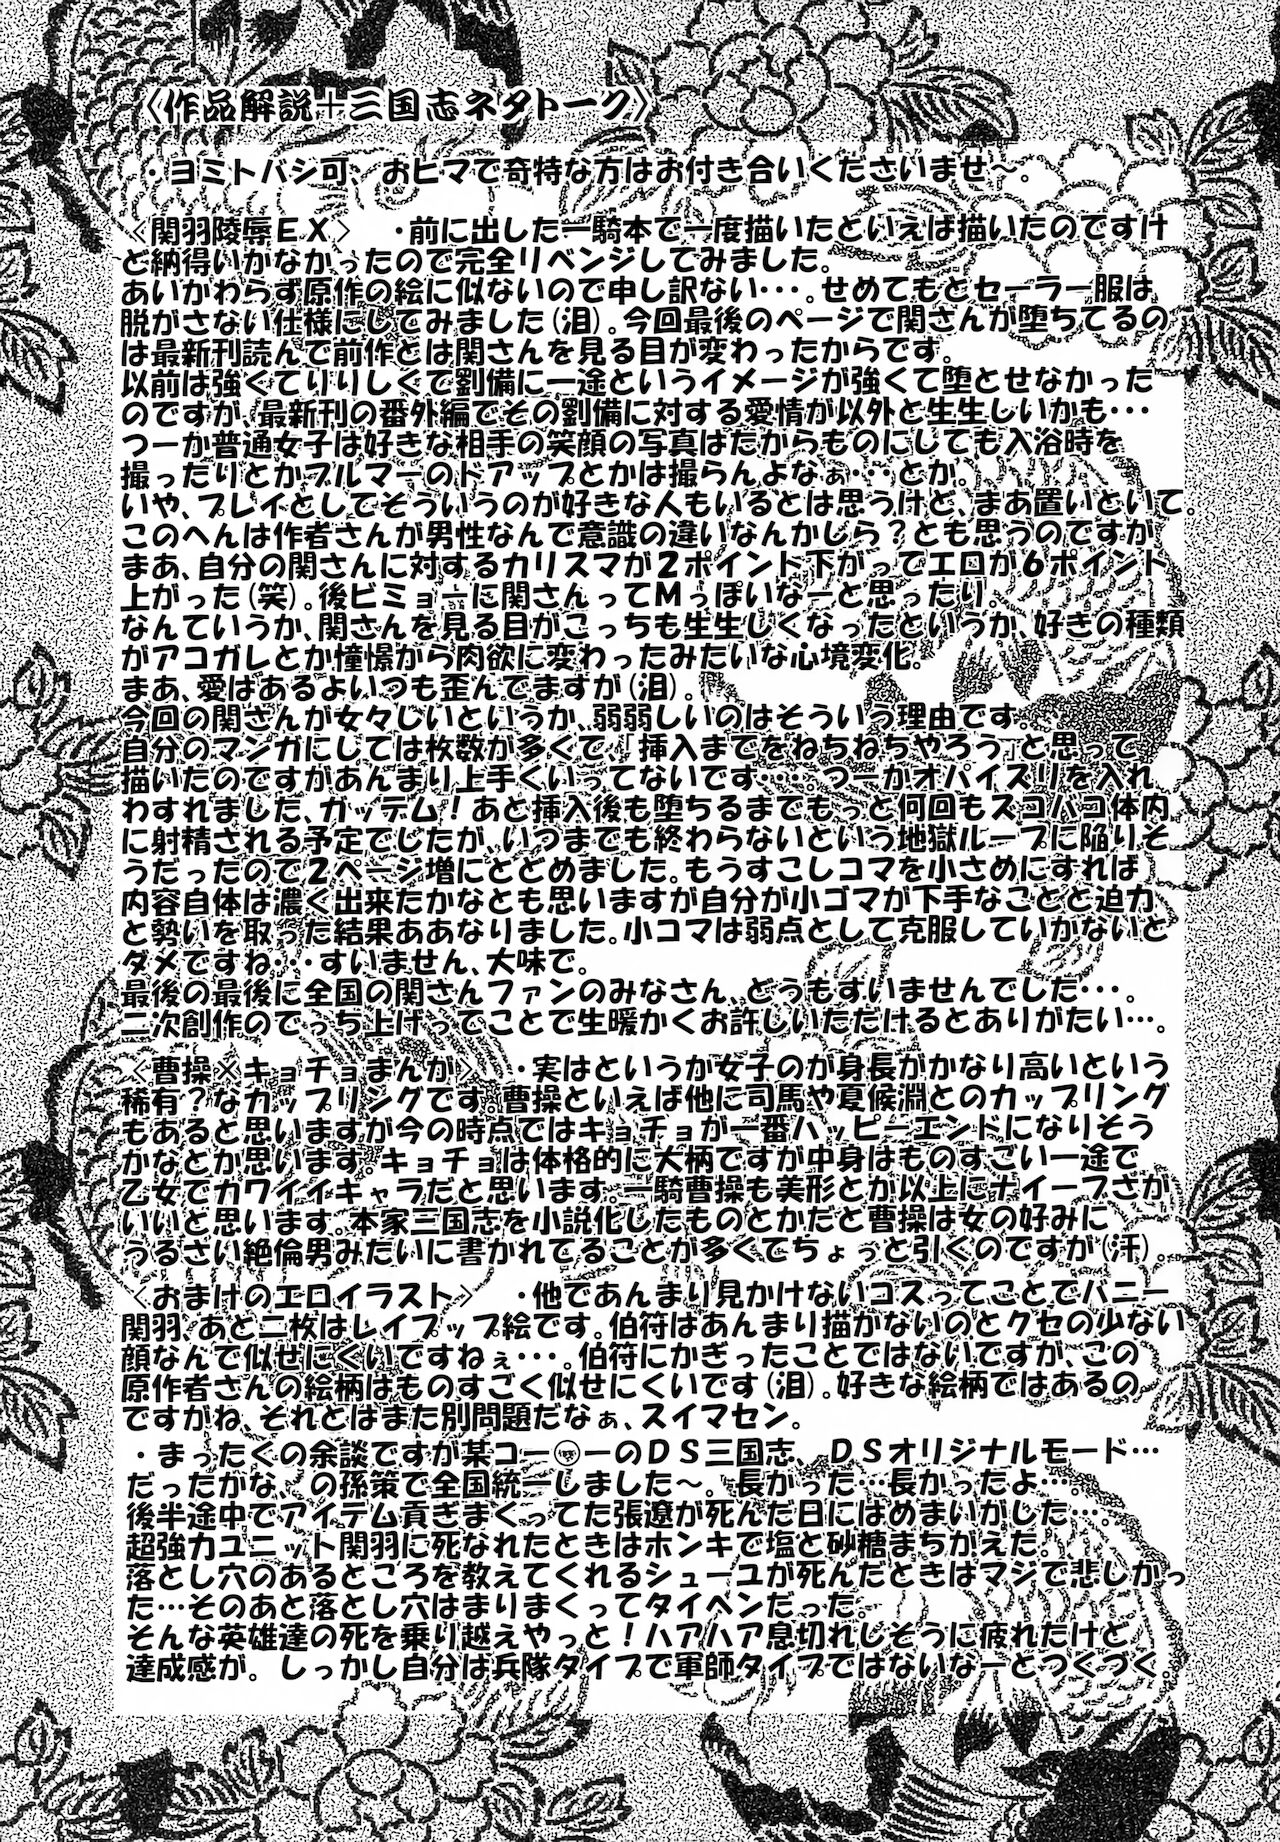 〈作品解説＋三国志ネタトーク〉
・ヨミトバシ可、おヒマで奇特な方はお付き合いくださいませ〜。
〈関羽陵辱ＥＸ〉　・前に出した一騎本で一度描いたといえば描いたのですけ
ど納得いかなかったので完全リベンジしてみました。
あいかわらず原作の絵に似ないので申し訳ない・・・。せめてもとセーラー服は
脱がさない仕様にしてみました(泪)。今回最後のページで関さんが堕ちてるの
は最新刊読んで前作とは関さんを見る目が変わったからです。
以前は強くてりりしくで劉備に一途というイメージが強くて堕とせなかった
のですが、最新刊の番外編でその劉備に対する愛情が以外と生生しいかも・・・
つーか普通女子は好きな相手の笑顔の写真はたからものにしても入浴時を
撮ったりとかブルマーのドアップとかは撮らんよなぁ・・・とか。
いや、プレイとしてそういうのが好きな人もいるとは思うけど、まあ置いといて。
このへんは作者さんが男性なんで意識の違いなんかしら？とも思うのですが
まあ、自分の関さんに対するカリスマが２ポイント下がってエロが６ポイント
上がった(笑)。後ビミョーに関さんってＭっぽいなーと思ったり。
なんていうか、関さんを見る目がこっちも生生しくなったというか、好きの種類
がアコガレとか憧憬から肉欲に変わったみたいな心境変化。
まあ、愛はあるよいつも歪んでますが(泪)。
今回の関さんが女々しいというか、弱弱しいのはそういう理由です。
自分のマンガにしては枚数が多くて、「挿入までをねちねちやろう」と思って
描いたのですがあんまり上手くいってないです・・・・。つーかオパイズリを入れ
わすれました、ガッデム！あと挿入後も堕ちるまでもっと何回もズコバコ体内
に射精される予定でしたが、いつまでも終わらないという地獄ループに陥りそ
うだったので２ページ増にとどめました。もうすこしコマを小さめにすれば
内容自体は濃く出来たかなとも思いますが自分が小ゴマが下手なことと迫力
と勢いを取った結果ああなりました。小コマは弱点として克服していかないと
ダメですね・・・すいません、大味で。
最後の最後に全国の関さんファンのみなさん、どうもすいませんでした・・・。
二次創作のでっち上げってことで生暖かくお許しいただけるとありがたい…。
〈曹操×キョチョまんが〉　・実はというか女子のが身長がかなり高いという
稀有？なカップリングです。曹操といえば他に司馬や夏候淵とのカップリング
もあると思いますが今の時点ではキョチョが一番ハッピーエンドになりそう
かなとか思います。キョチョは体格的に大柄ですが中身はものすごい一途で
乙女でカワイイキャラだと思います。一騎曹操も美形とか以上にナイーブさが
いいと思います。本家三国志を小説化したものとかだと曹操は女の好みに
うるさい絶倫男みたいに書かれてることが多くてちょっと引くのですが(汗)。
〈おまけのエロイラスト〉　・他であんまり見かけないコスってことでバニー
関羽、あと二枚はレイプップ絵です。伯符はあんまり描かないのとクセの少ない
顔なんで似せにくいですねぇ・・・。伯符にかぎったことではないですが、この
原作者さんの絵柄はものすごく似せにくいです(泪)。好きな絵柄ではあるの
ですがね、それとはまた別問題だなぁ、スイマセン。
・まったくの余談ですが某コー○ーのＤＳ三国志、ＤＳオリジナルモード…
だったかな、の孫策で全国統一しました〜。長かった…長かったよ…。
後半途中でアイテム貢ぎまくってた張遼が死んだ日にはめまいがした…。
超強力ユニット関羽に死なれたときはホンキで塩と砂糖まちがえた。
落とし穴のあるところを教えてくれるシューユが死んだときはマジで悲しかっ
た…そのあと落とし穴はまりまくってタイヘンだった。
そんな英雄達の死を乗り越えやっと！ハアハア息切れしそうに疲れたけど
達成感が。しっかし自分は兵隊タイプで軍師タイプではないなーとつくづく。